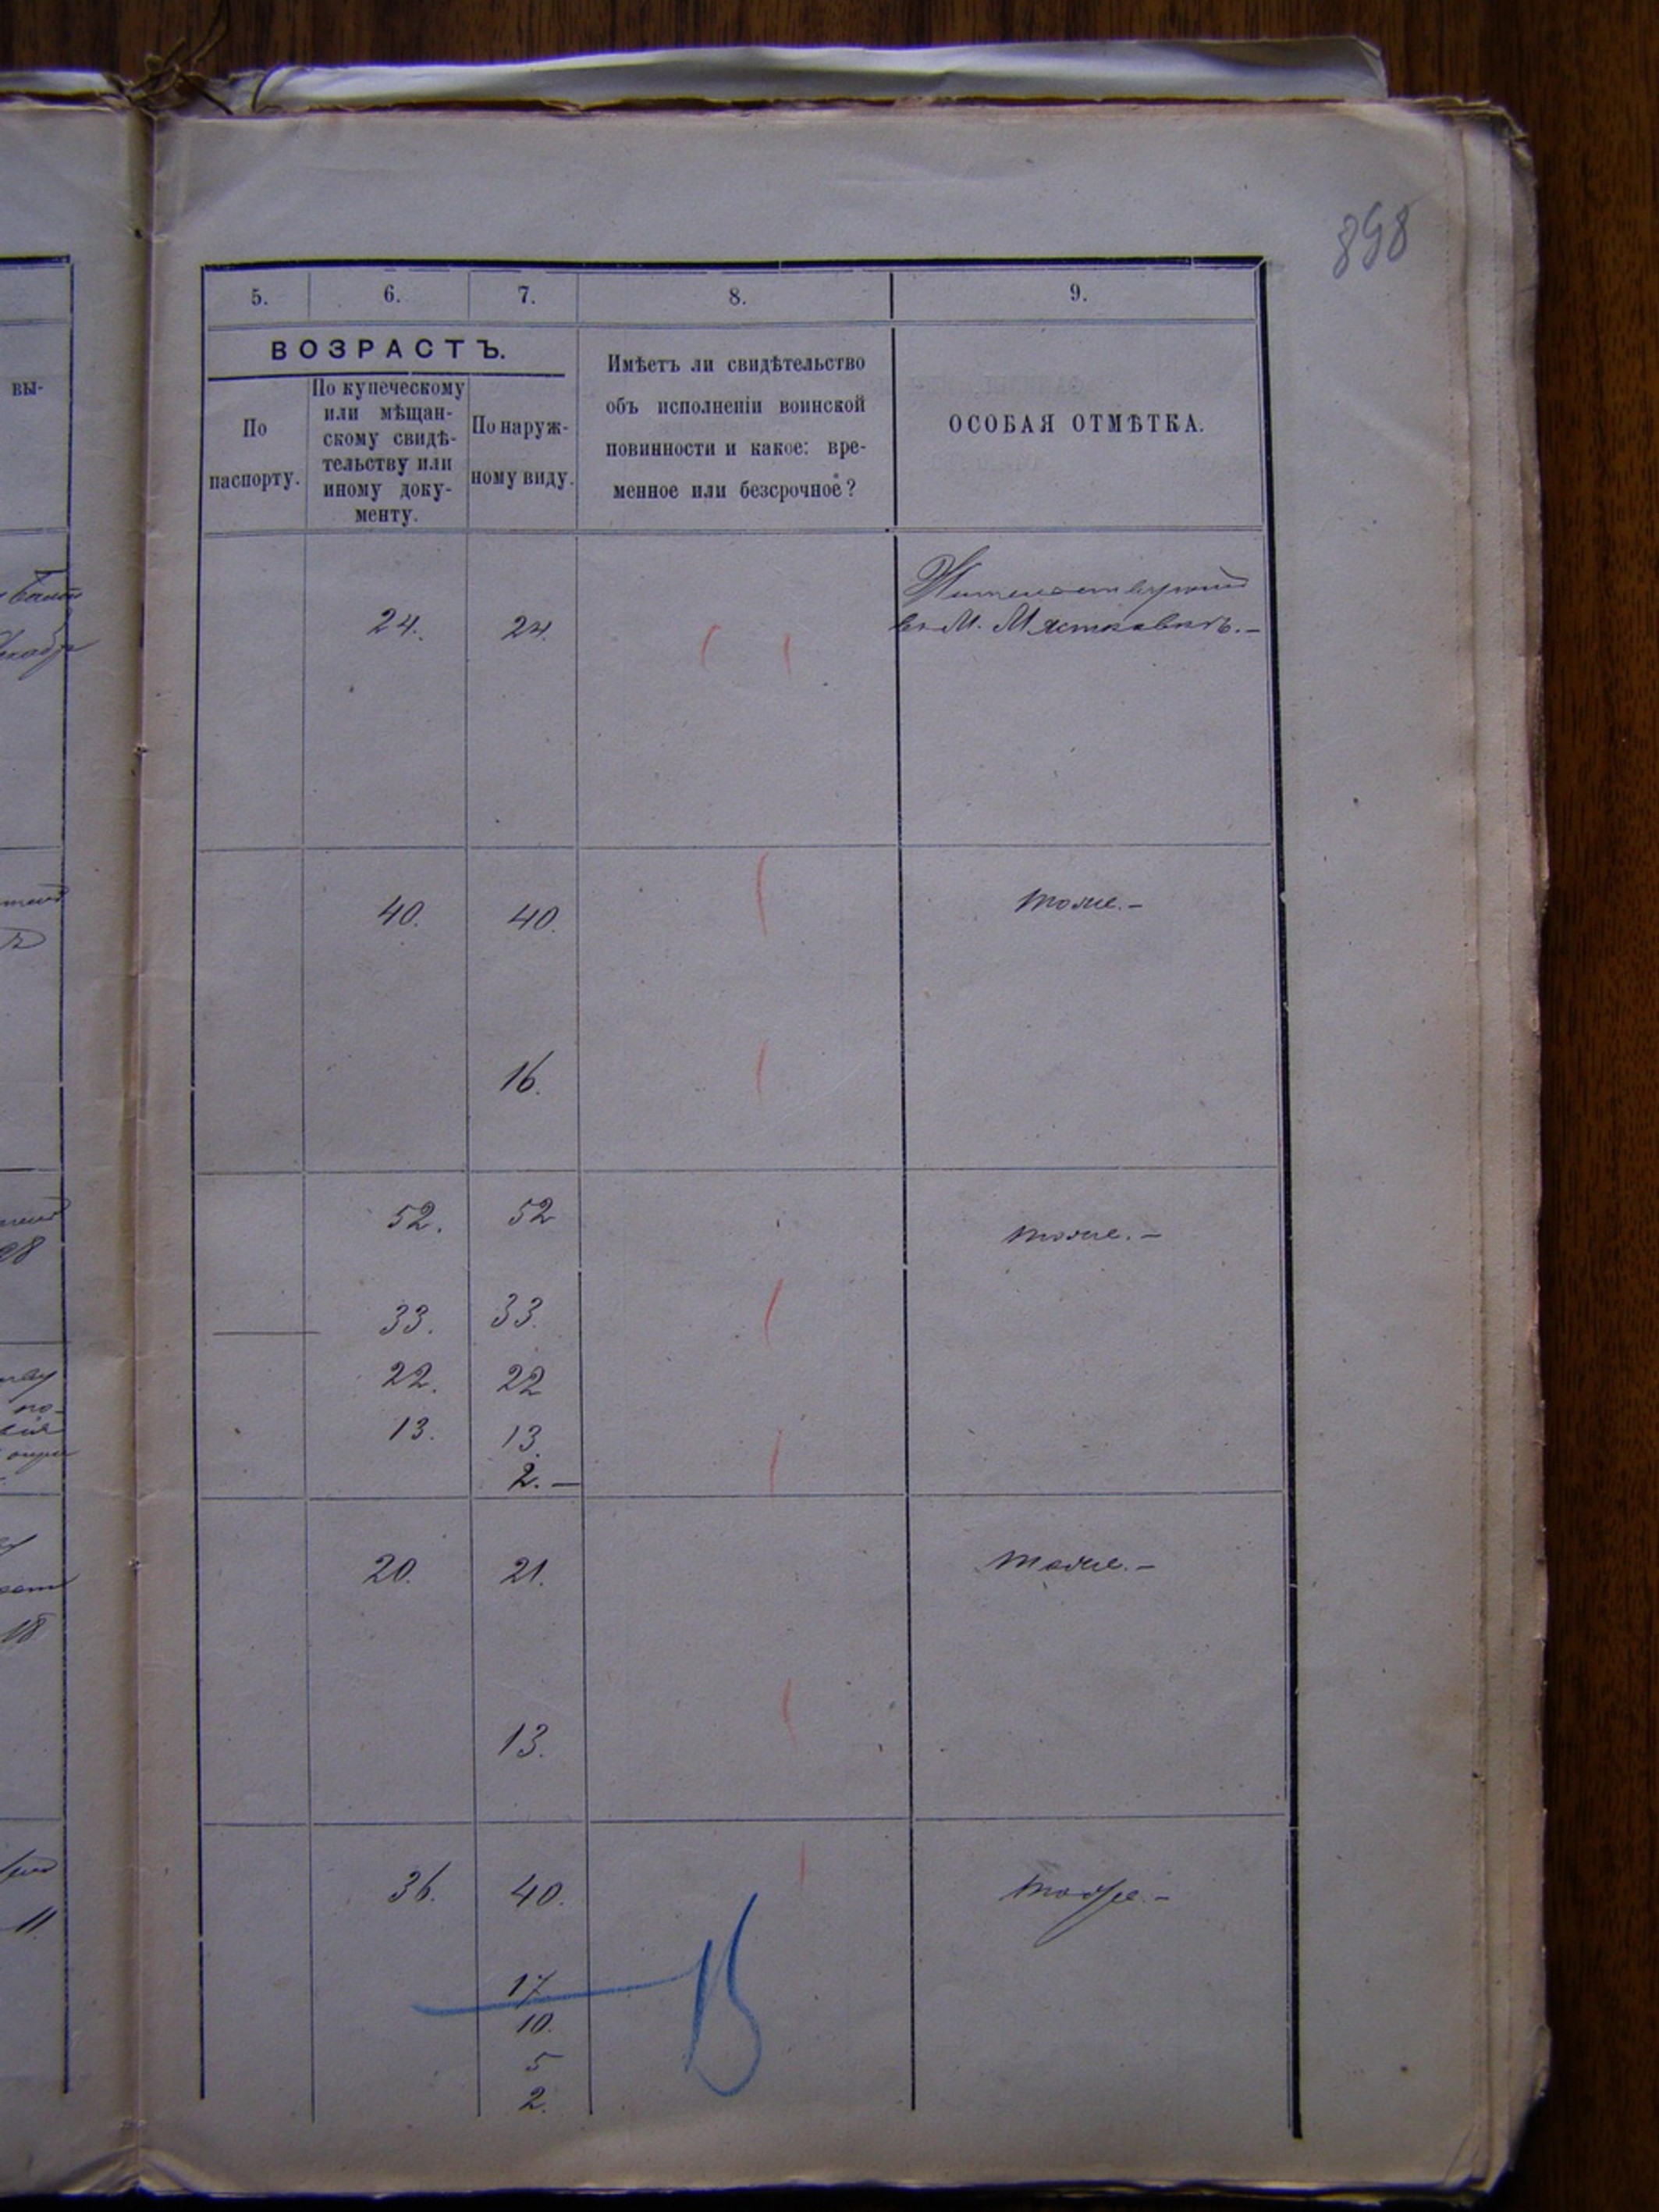 898
5. 6. 7. 8. 9.
ВОЗРАСТЪ.
По
паспорту.
По купеческому
или мѣщан-
скому свидѣ-
тельству или
иному доку-
менту.
По наруж-
ному виду.
Имѣетъ ли свидѣтельство
объ исполненіи воинской
повинности и какое: вре-
менное или безсрочное?
ОСОБАЯ ОТМѢТКА.
вы-
Жительствующій
24. 24. въ М. Мястковкѣ.-
40. 40. тоже.-
16.
52. 52 тоже.-
28
33. 33.
22. 22
по-
13. 13.
2.-
20. 21. тоже.-
18
13.
36. 40. тоже.-
11.
17.
10.
5
2.